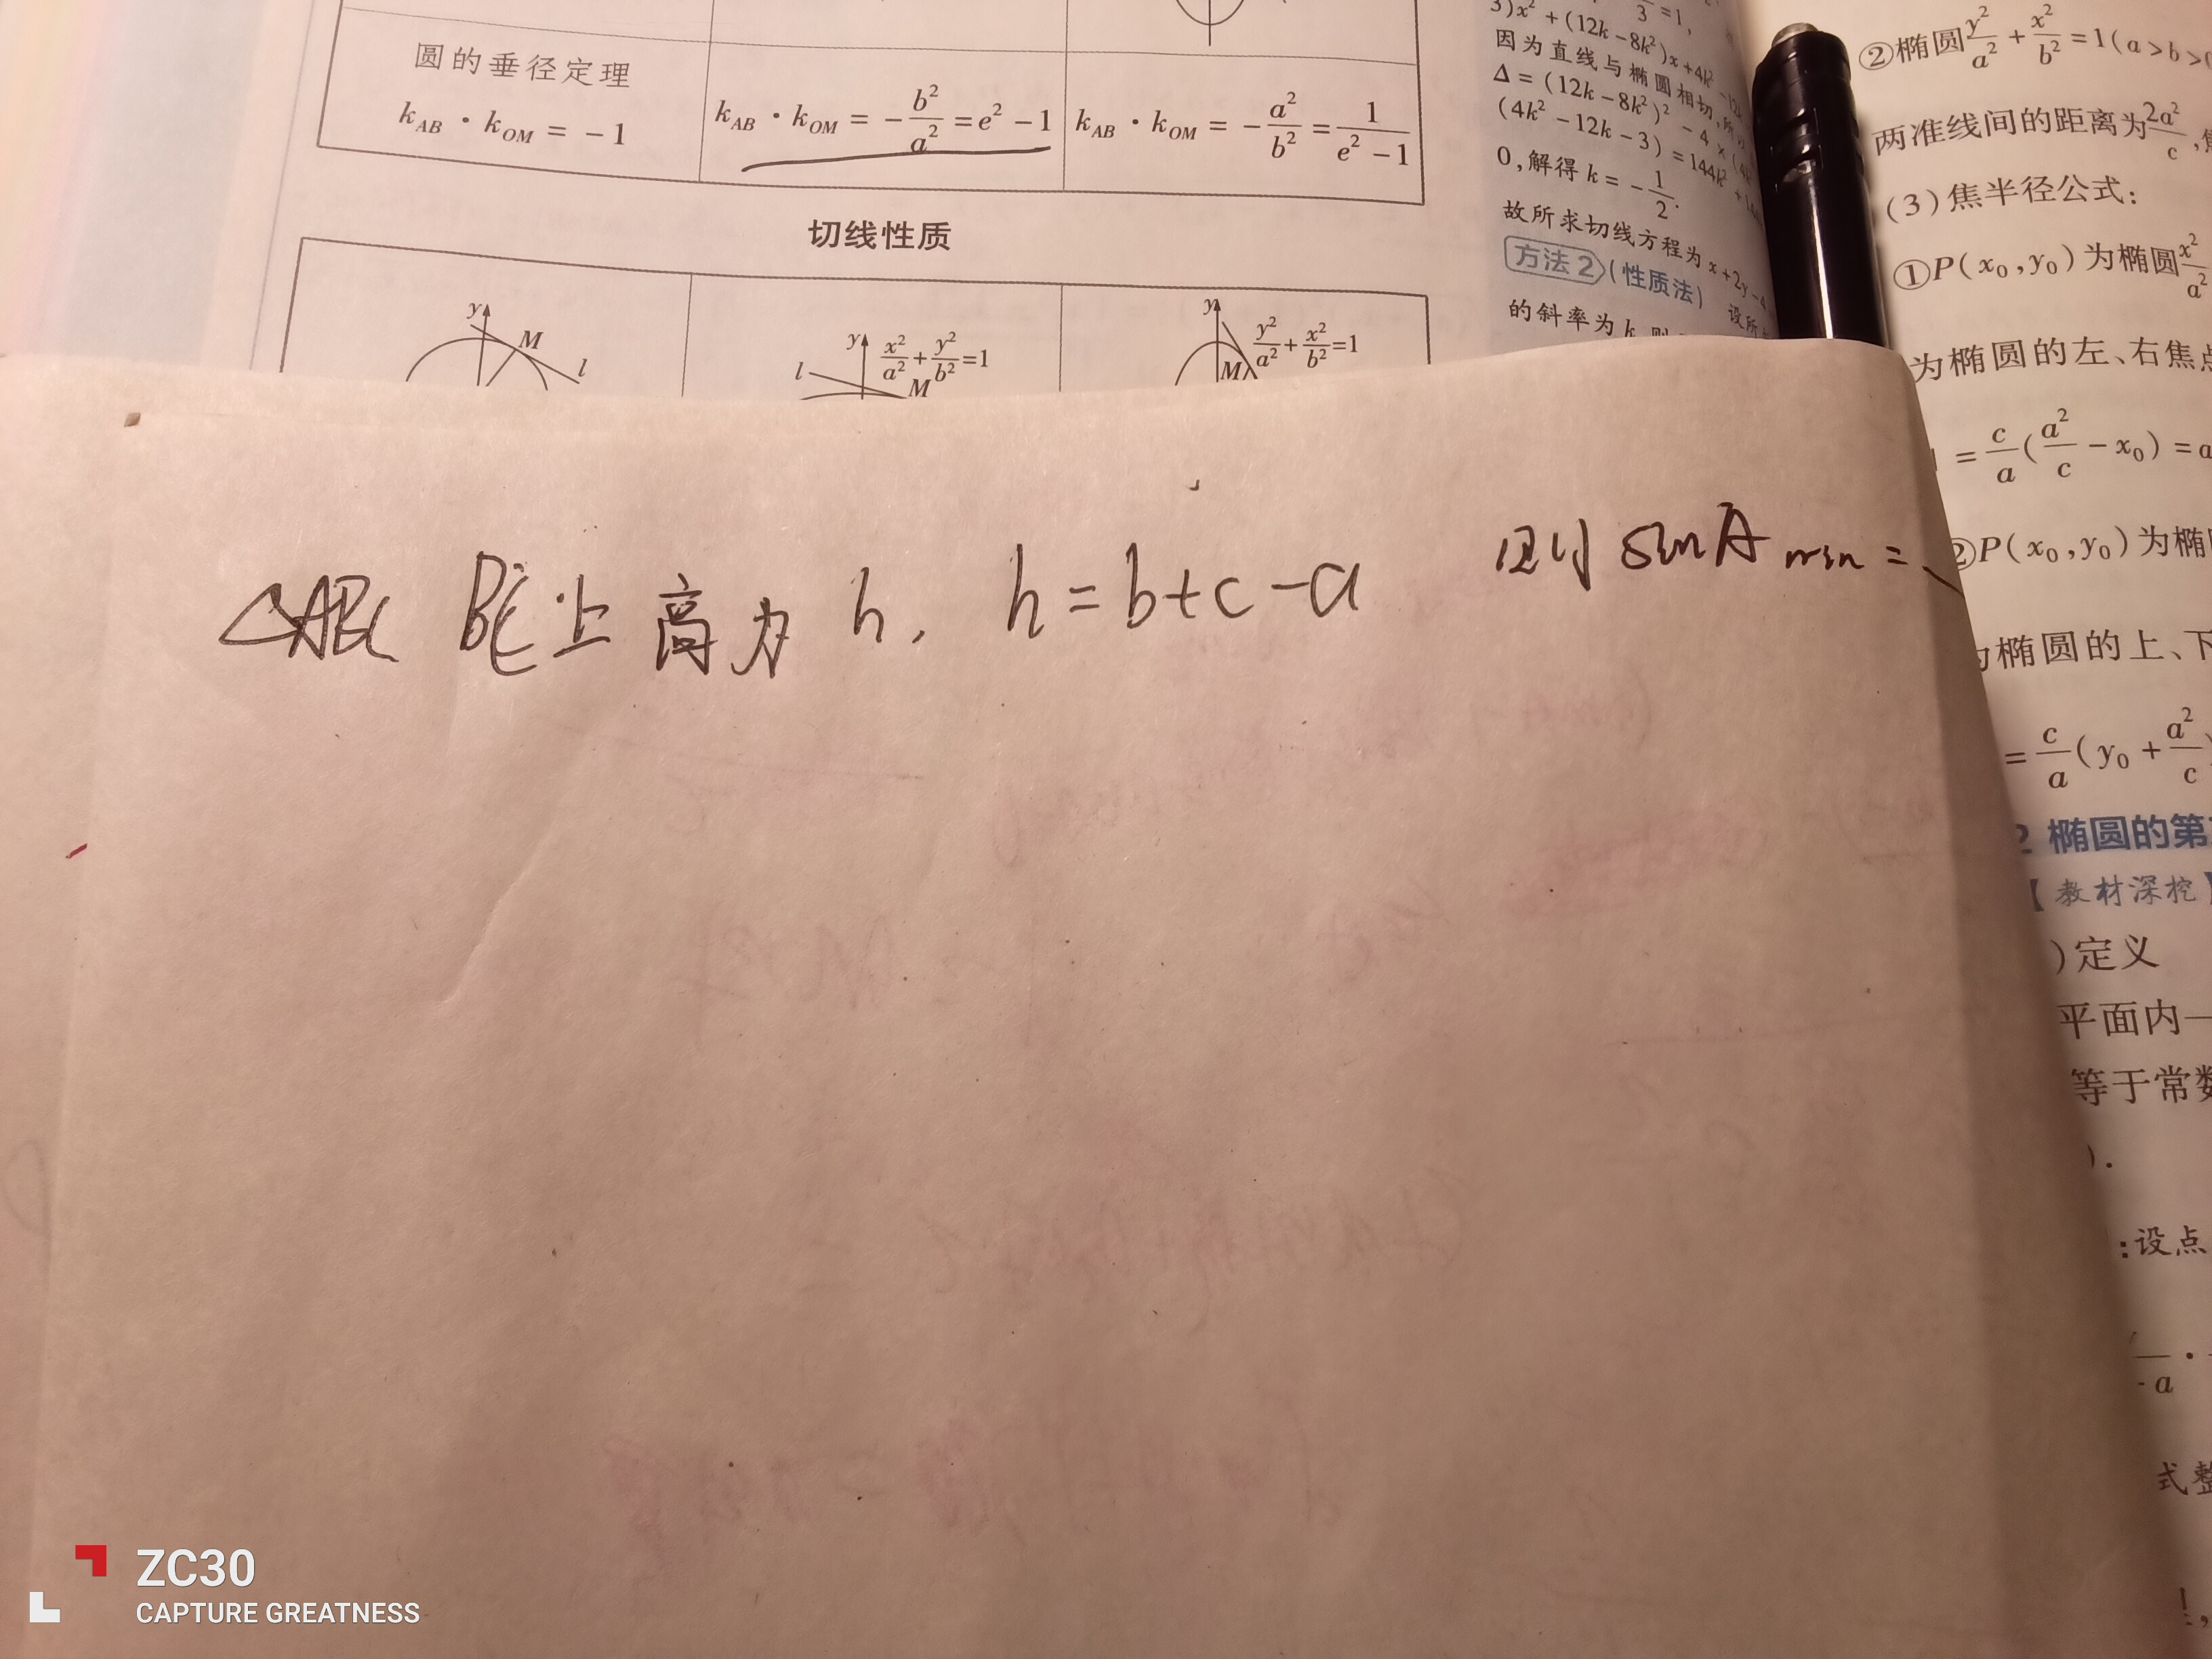 圆的垂径定理
k_AB · k_OM = -1
k_AB · k_OM = - b²/a² = e² - 1
k_AB · k_OM = - a²/b² = 1/(e² - 1)
切线性质
y
M
l
y
x²/a² + y²/b² = 1
l
M
y
y²/a² + x²/b² = 1
M
3)x² + (12k - 8k²)x + 4k²
因为直线与椭圆相切,所
Δ = (12k - 8k²)² - 4 × (4k
(4k² - 12k - 3) = 144k² +
0,解得 k = - 1/2.
故所求切线方程为 x + 2y - 4
方法2 (性质法) 设所
的斜率为 k
②椭圆 y²/a² + x²/b² = 1 (a > b >
两准线间的距离为 2a²/c ,
(3)焦半径公式:
①P(x₀,y₀)为椭圆 x²/a²
为椭圆的左、右焦点
= c/a (a²/c - x₀) = a
②P(x₀,y₀)为椭圆
为椭圆的上、下
= c/a (y₀ + a²/c)
2 椭圆的第
【教材深挖】
)定义
平面内一
等于常数
).
:设点
- a
式整
△ABC BC上高为 h, h = b+c-a 则 sinA min =
ZC30
CAPTURE GREATNESS